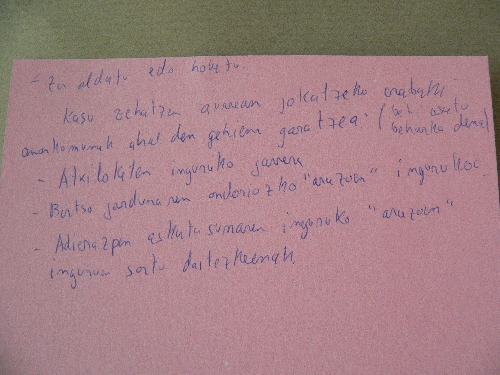 - Zer aldatu edo hobetu.
Kasu zehatzen aurrean jokatzeko erabaki
amankomunak ahal den gehiena garatzea. (bat asatu
beharko dena)
- Atxiloketen inguruko jarrera
- Bertso jardunaren ondoriozko "arazoen" ingurukoa.
- Adierazpen askatasunaren inguruko "arazoen"
inguruan sortu daitezkeenak.